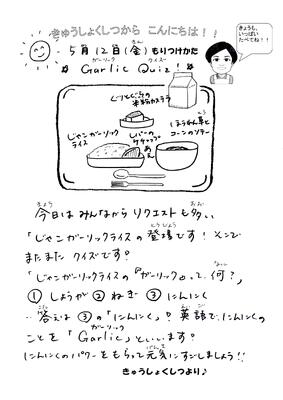 きゅうしょくしつから こんにちは!!
きょうも、
いっぱい
たべてね!!
5月12日(金)もりつけかた
ガーリック クイズー
Garlic Quiz!
じゃこガーリック
ライス
レバーの
ケチャップ
あえ
ほうれん草と
コーンのソテー
きょう
今日は みんなから リクエストも多い、
「じゃこガーリックライスの 登場です! そこで
またまた クイズです。
「じゃこガーリックライスの『ガーリック』って、何?」
① しょうが ② ねぎ ③ にんにく
答えは ③の「にんにく」! 英語で、にんにくの
ガーリック
ことを「Garlic」といいます。
にんにくのパワーをもらって元気にすごしましょう!!
きゅうしょくしつより♪